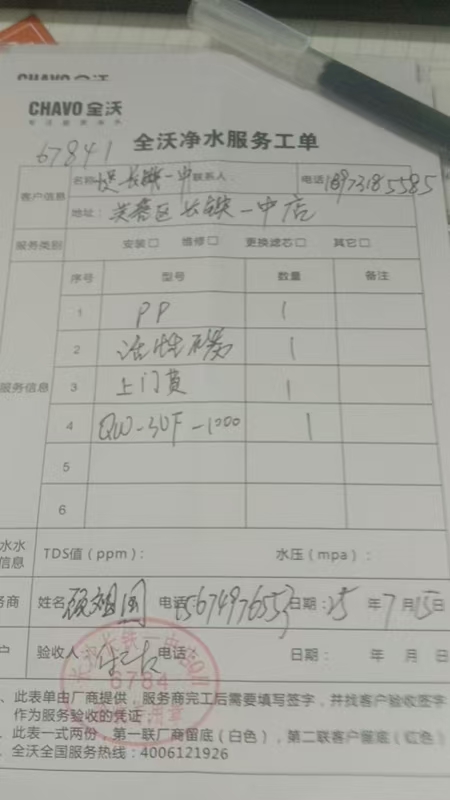 CHAVO全沃
全沃净水服务工单
67841
客户信息 名称 长铁一中 联系人: 电话
地址: 芙蓉区长铁一中店
服务类别 安装□ 维修□ 更换滤芯□ 其它□
服务信息 序号 型号 数量 备注
1 PP 1
2 活性炭 1
3 上门费 1
4 QW-3UF-1000 1
5
6
水水 信息 TDS值(ppm): 水压(mpa):
务商 姓名 祖国 电话: 日期: 25 年 7 月 15 日
户 验收人: 电话: 日期: 年 月 日
、此表单由厂商提供,服务商完工后需要填写签字,并找客户验收签字
作为服务验收的凭证
、此表一式两份,第一联厂商留底(白色),第二联客户留底(红色)
、全沃全国服务热线:4006121926
长铁一中店
6784